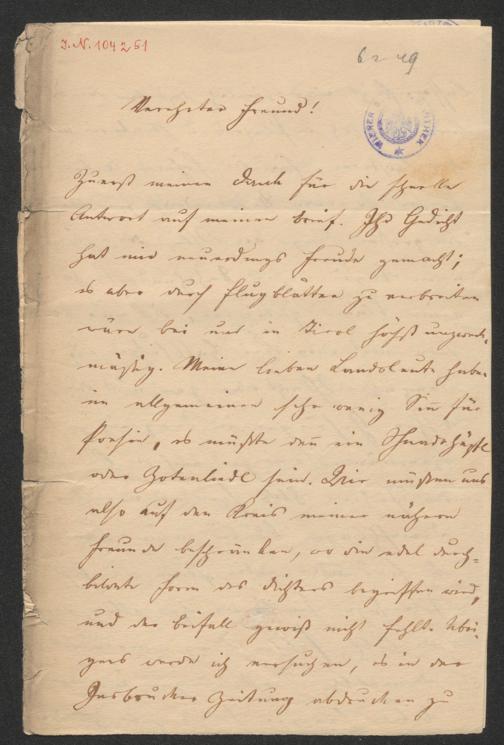 I. N. 104251
Verehrter Freund!
Zuerst meinen Dank für die schnelle
Antwort auf meinen Brief. Ihr Gedicht
hat mir neuerdings Freude gemacht;
es aber durch Flugblätter zu verbreiten
wäre bei uns in Tirol höchst unzweck-
mäßig. Meine lieben Landsleute haben
im allgemeinen sehr wenig Sinn für
Poesie, es müßte denn ein Schnadahüpfl
oder Zotenliedl sein. Wir müssen uns
also auf den Kreis meiner nähern
Freunde beschränken, wo die edel durch-
bildete Form des Dichters begriffen wird,
und der Beifall gewiß nicht fehlt. Übri-
gens werde ich versuchen, es in der
Insbrucker Zeitung abdrucken zu